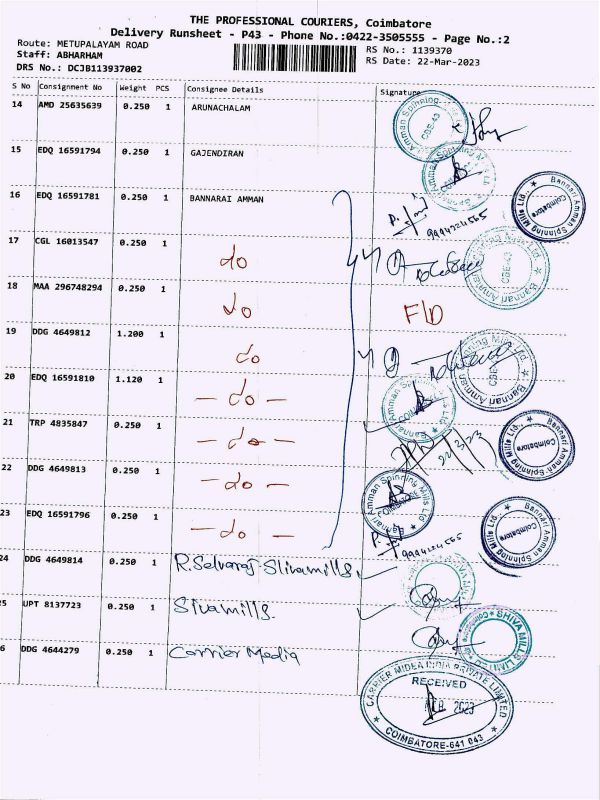 THE PROFESSIONAL COURIERS, Coimbatore
Delivery Runsheet - P43 - Phone No.:0422-3505555 - Page No.:2
Route: METUPALAYAM ROAD
RS No.: 1139370
Staff: ABHARHAM
RS Date: 22-Mar-2023
DRS No.: DCJB113937002
S No Consignment No Weight PCS Consignee Details Signature
14 AMD 25635639 0.250 1 ARUNACHALAM
15 EDQ 16591794 0.250 1 GAJENDIRAN
16 EDQ 16591781 0.250 1 BANNARAI AMMAN
9994724565
17 CGL 16013547 0.250 1 do
18 MAA 296748294 0.250 1 do F/D
19 DDG 4649812 1.200 1 do
20 EDQ 16591810 1.120 1 - do -
21 TRP 4835847 0.250 1 - do -
22/3/23
22 DDG 4649813 0.250 1 - do -
23 EDQ 16591796 0.250 1 - do -
24 DDG 4649814 0.250 1 R.Selvaraj-Slivamills,
25 UPT 8137723 0.250 1 Sivamills.
SHIVA MILLS LIMITED
Coimbatore
6 DDG 4644279 0.250 1 Carrier Media
CARRIER MIDEA INDIA PRIVATE LIMITED
RECEIVED
2023
COIMBATORE-641 043
Amman Spinning
CBE-43
Bannari Amman Spinning Mills Ltd.,
Coimbatore
Bannari Amman Spinning Mills Ltd.
CBE-43
Bannari Amman Spinning Mills Ltd.
CBE-43
Bannari Amman Spinning Mills Ltd.,
Coimbatore
Bannari Amman Spinning Mills Ltd
Bannari Amman Spinning Mills Ltd.,
Coimbatore